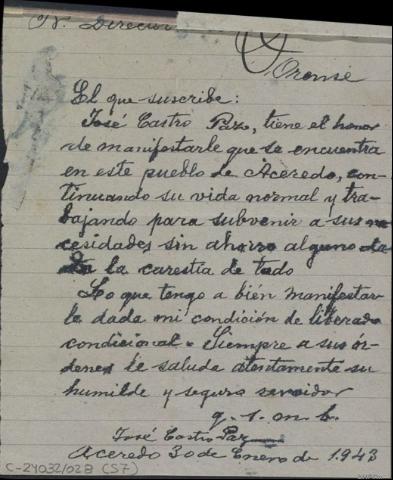 Sr. Director
Orense
El que suscribe:
José Castro Paz, tiene el honor
de manifestarle que se encuentra
en este pueblo de Aceredo, con-
tinuando su vida normal y tra-
bajando para subvenir a sus ne
cesidades sin ahorro alguno da
da la carestía de todo
Lo que tengo a bién manifestar
le dada mi condición de liberado
condicional. Siempre a sus ór-
denes le saluda atentamente su
humilde y seguro servidor
q. e. s. m.
José Castro Paz
Aceredo 30 de Enero de 1.943
C-24032/02B (57)